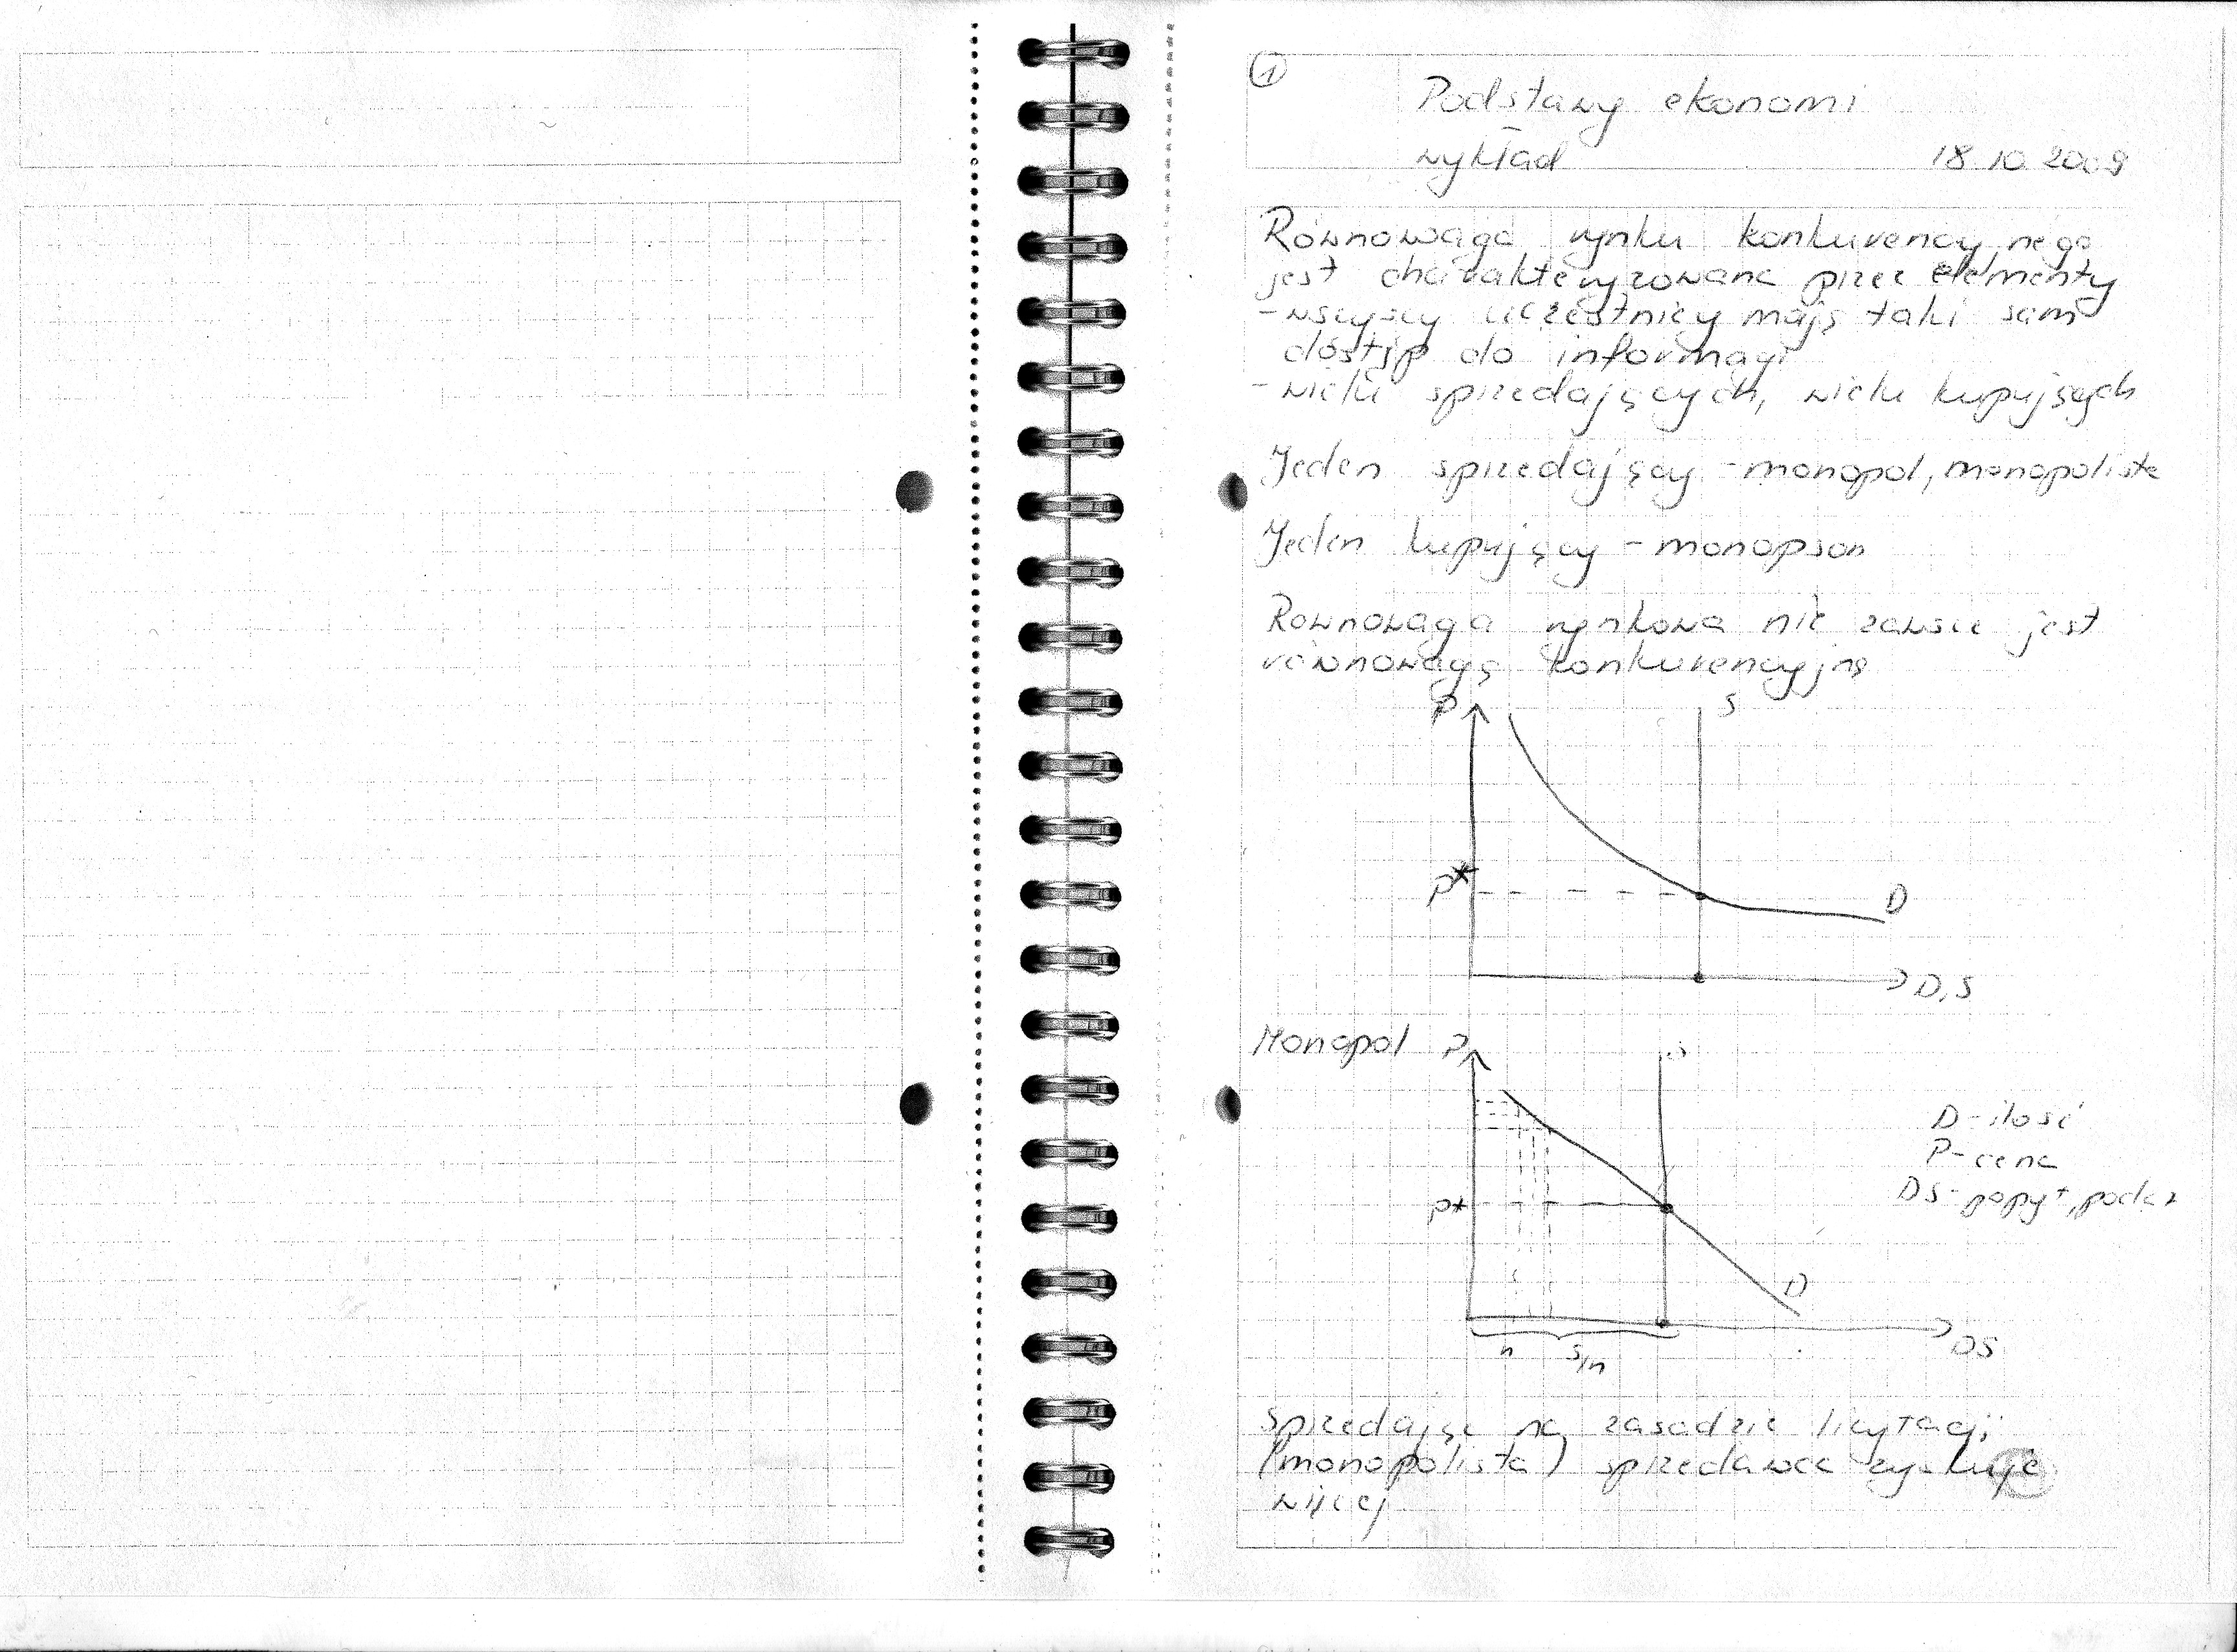 1
Podstawy ekonomi
wykład 18.10.2009
Równowaga rynku konkurencyjnego
jest charakteryzowana przez elementy
- wszyscy uczestnicy mają taki sam
dostęp do informacji
- wielu sprzedających, wielu kupujących
Jeden sprzedający - monopol, monopolista
Jeden kupujący - monopson
Rownowaga rynkowa nie zawsze jest
równowagą konkurencyjną
P S
P*
D
D,S
Monopol P S
D - ilość
P - cena
DS - popyt, podaż
P*
D
DS
n S/n
Sprzedając na zasadzie licytacji
(monopolista) sprzedawca zyskuje
więcej